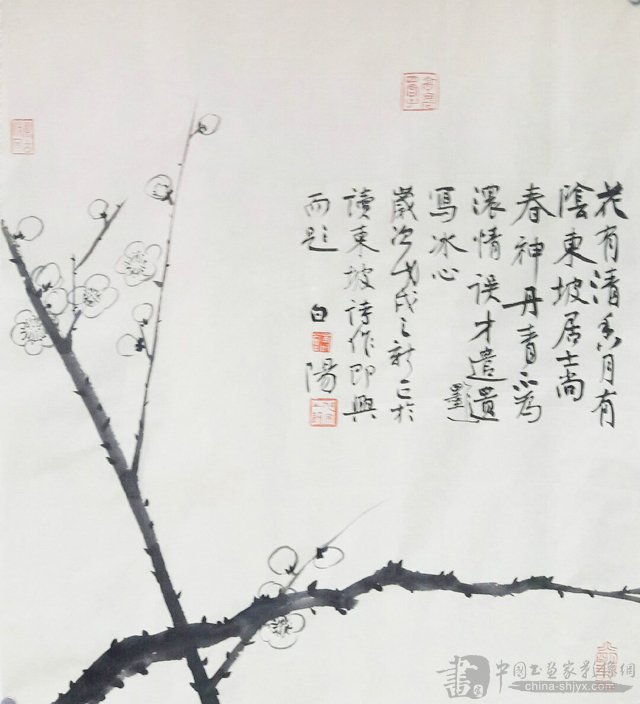 花有清香月有
陰東坡居士尚
春神丹青不為
濃情誤才遣遺墨
寫冰心
歲次戊戌之新正於
讀東坡詩作即興
而題
白陽
書 中國書畫家影像網
china-shjyx.com